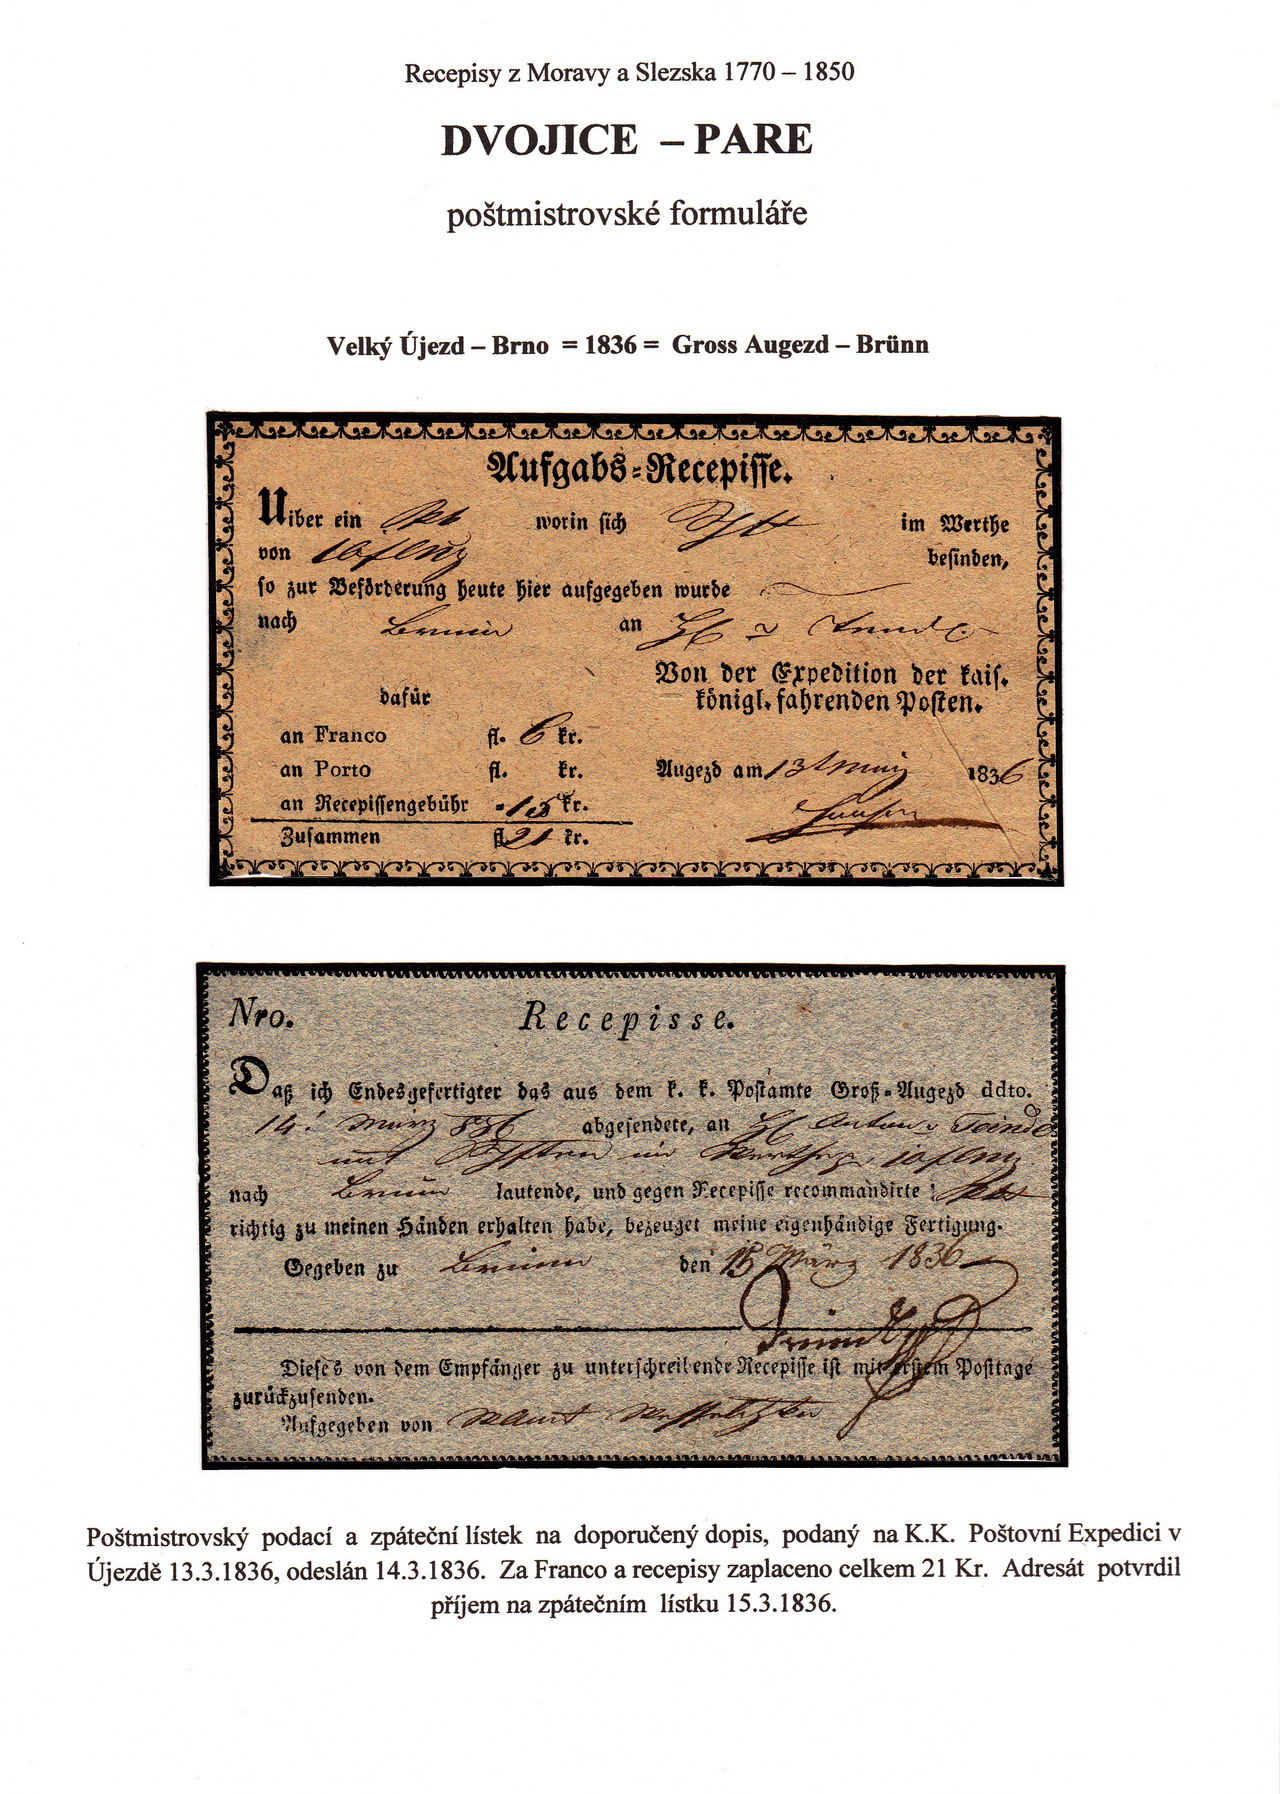 Recepisy z Moravy a Slezska 1770 – 1850
DVOJICE – PARE
poštmistrovské formuláře
Velký Újezd – Brno = 1836 = Gross Augezd – Brünn
Aufgabs-Recepisse.
Uiber ein worin sich im Werthe
von befinden,
so zur Beförderung heute hier aufgegeben wurde
nach Brünn an
Von der Expedition der kais.
königl. fahrenden Posten.
dafür
an Franco fl. 6 kr.
an Porto fl. kr.
Augezd am 13t März 1836
an Recepissengebühr - 15 kr.
Zusammen fl. 21 kr.
Nro. Recepisse.
Daß ich Endesgefertigter das aus dem k. k. Postamte Groß-Augezd ddto.
14. März 836 abgesendete, an Anton
mit im
nach Brünn lautende, und gegen Recepisse recommandirte
richtig zu meinen Händen erhalten habe, bezeuget meine eigenhändige Fertigung.
Gegeben zu Brünn den 15 März 1836
Dieses von dem Empfänger zu unterschreibende Recepisse ist mit erstem Posttage
zurückzusenden.
Aufgegeben von
Poštmistrovský podací a zpáteční lístek na doporučený dopis, podaný na K.K. Poštovní Expedici v
Újezdě 13.3.1836, odeslán 14.3.1836. Za Franco a recepisy zaplaceno celkem 21 Kr. Adresát potvrdil
příjem na zpátečním lístku 15.3.1836.